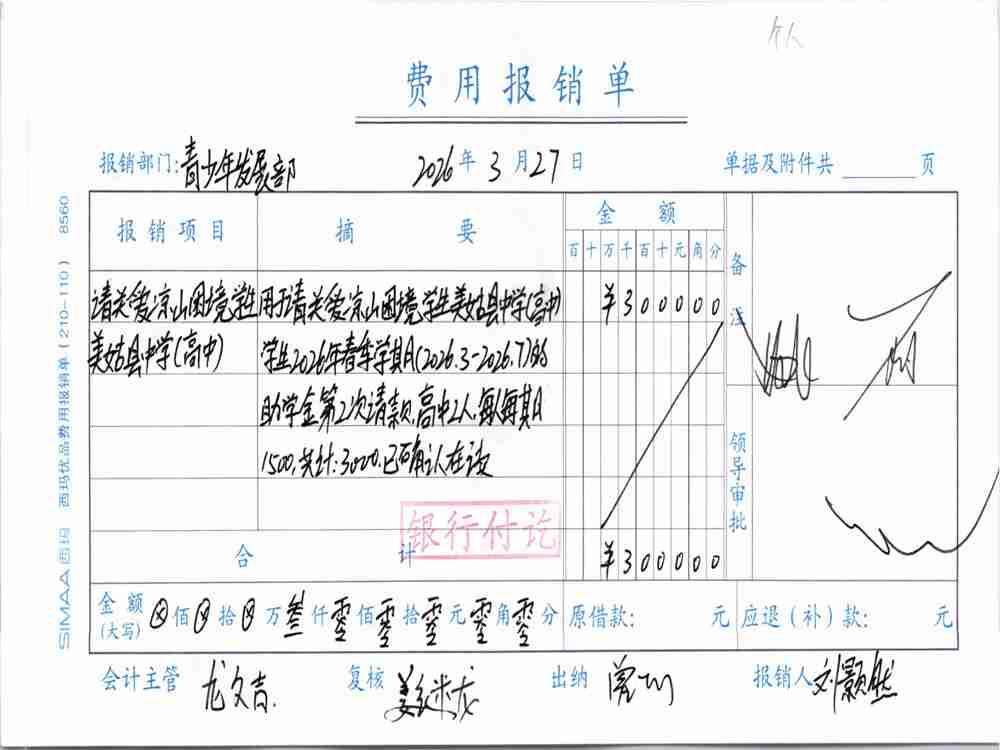 个人
费用报销单
报销部门:青少年发展部 2026年3月27日 单据及附件共 页
报销项目 摘要 金额 备注
百十万千百十元角分
请关爱凉山困境学生 用于请关爱凉山困境学生美姑县中学(高中) ¥300000
美姑县中学(高中) 学生2026年春季学期(2026.3-2026.7)的
助学金第2次请款,高中2人,每人每期
1500,共计:3000.已确认在该
领导审批
银行付讫
合计 ¥300000
金额(大写) ⊗佰⊗拾⊗万叁仟零佰零拾零元零角零分 原借款: 元 应退(补)款: 元
会计主管 龙文吉 复核 出纳 报销人 刘颢然
SIMAA西玛 西玛优品费用报销单(210-110) 8560